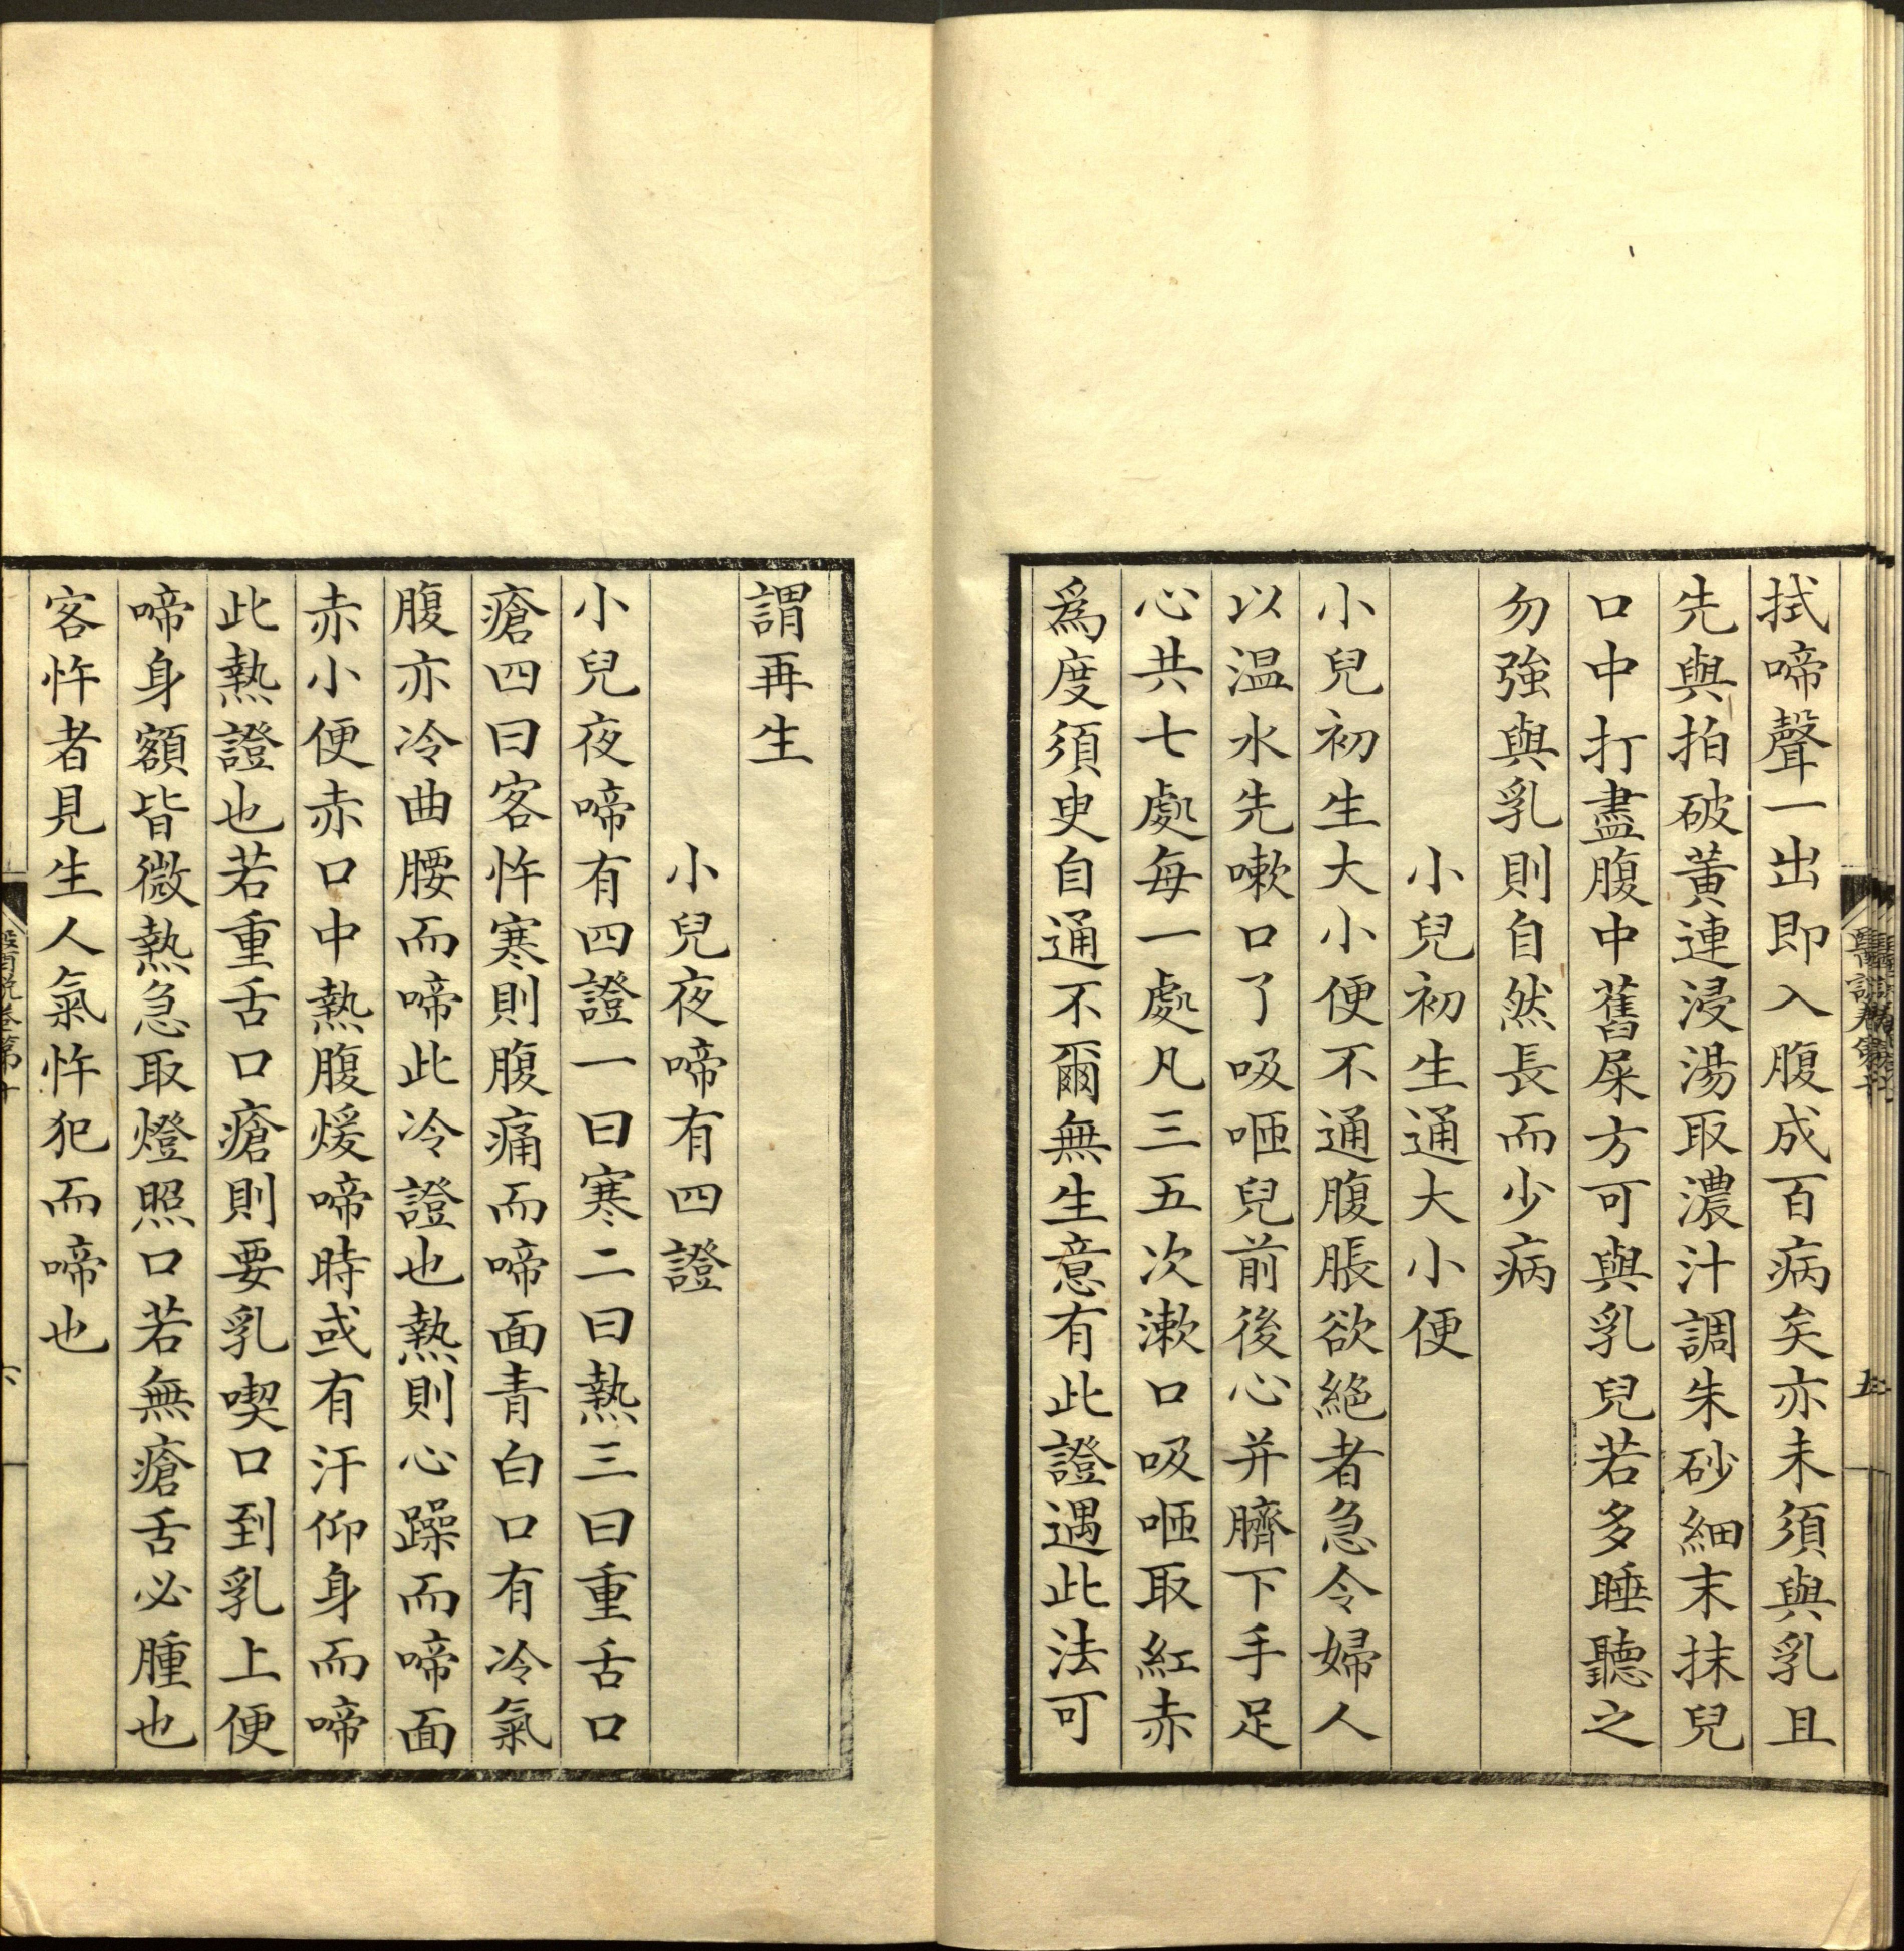 拭啼聲一出即入腹成百病矣亦未須與乳且
先與拍破黃連浸湯取濃汁調朱砂細末抹兒
口中打盡腹中舊屎方可與乳兒若多睡聽之
勿強與乳則自然長而少病
小兒初生通大小便
小兒初生大小便不通腹脹欲絕者急令婦人
以温水先嗽口了吸咂兒前後心并臍下手足
心共七處每一處凡三五次漱口吸咂取紅赤
為度須臾自通不爾無生意有此證遇此法可
謂再生
小兒夜啼有四證
小兒夜啼有四證一曰寒二曰熱三曰重舌口
瘡四曰客忤寒則腹痛而啼面青白口有冷氣
腹亦冷曲腰而啼此冷證也熱則心躁而啼面
赤小便赤口中熱腹煖啼時或有汗仰身而啼
此熱證也若重舌口瘡則要乳喫口到乳上便
啼身額皆微熱急取燈照口若無瘡舌必腫也
客忤者見生人氣忤犯而啼也